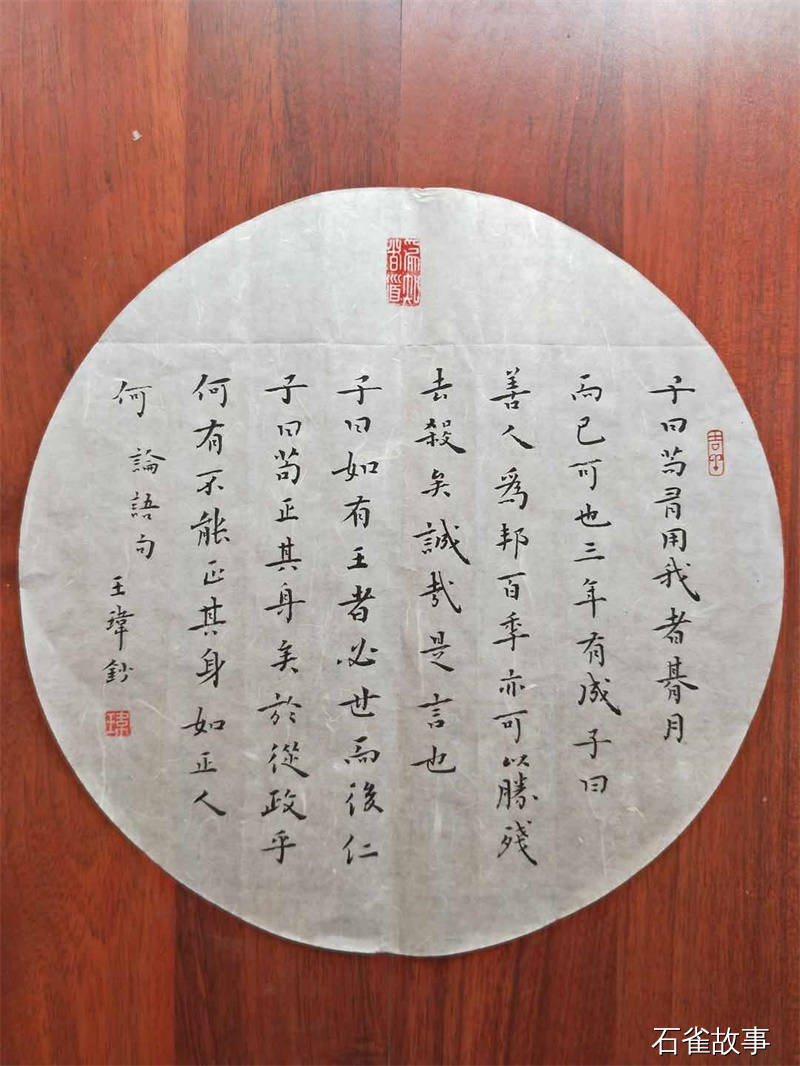 子曰苟有用我者朞月
而已可也三年有成子曰
善人為邦百季亦可以勝残
去殺矣誠哉是言也
子曰如有王者必世而後仁
子曰苟正其身矣於從政乎
何有不能正其身如正人
何
論語句
王瑋鈔
石雀故事